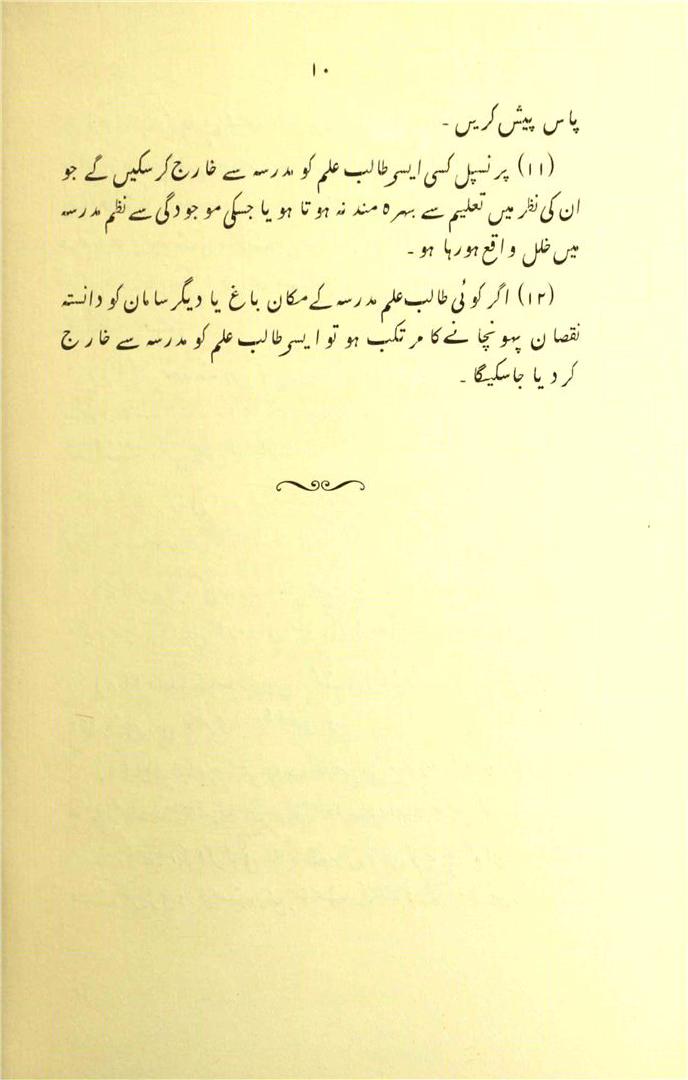 ۱۰
پاس پیش کریں ۔
(۱۱) پرنسپل کسی ایسے طالب علم کو مدرسہ سے خارج کرسکیں گے جو
ان کی نظر میں تعلیم سے بہرہ مند نہ ہوتا ہو یا جسکی موجودگی سے نظم مدرسہ
میں خلل واقع ہورہا ہو ۔
(۱۲) اگر کوئی طالب علم مدرسہ کے مکان باغ یا دیگر سامان کو دانستہ
نقصان پہونچانے کا مرتکب ہو تو ایسے طالب علم کو مدرسہ سے خارج
کردیا جاسکیگا ۔